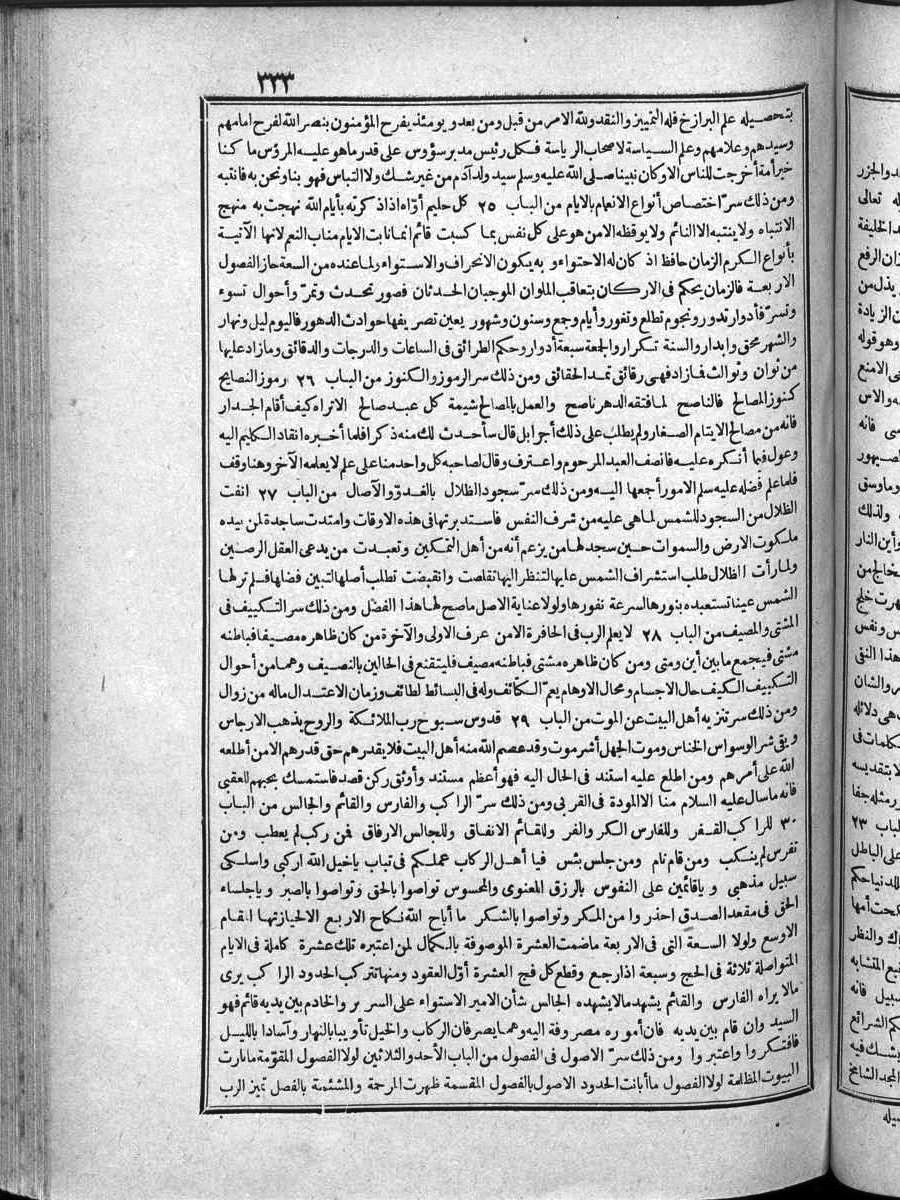 ٣٣٣
بتحصيله علم البرازخ فله التمييز والنقد ولله الامر من قبل ومن بعد ويومئذ يفرح المؤمنون بنصر الله لفرح امامهم
وسيدهم وعلامهم وعلم السياسة لاصحاب الرياسة فكل رئيس مدبر سؤوس على قدر ماهو عليه المرؤس ما كنا
خير أمة أخرجت للناس الاوكان نبينا صلى الله عليه وسلم سيد ولد آدم من غير شك ولا التباس فهو بنا ونحن به فانتبه
ومن ذلك سر اختصاص أنواع الانعام بالايام من الباب ٢٥ كل حليم أوّاه اذا ذكرته بأيام الله نهجت به منهج
الانتباه ولا ينتبه الا النائم ولا يوقظه الا من هو على كل نفس بما كسبت قائم انما نابت الايام مناب النعم لانها الآتية
بأنواع الكرم الزمان حافظ اذ كان له الاحتواء وبه يكون الانحراف والاستواء ولما عنده من السعة حاز الفصول
الاربعة فالزمان يحكم فى الاركان بتعاقب الملوان الموجبان الحدثان فصور تحدث وتمرّ وأحوال تسوء
وتسرّ فأدوار تدور ونجوم تطلع وتغور وأيام وجمع وسنون وشهور يعين تصريفها حوادث الدهور فاليوم ليل ونهار
والشهر محق وابدار والسنة تكرار والجمعة سبعة أدوار وحكم الطرائق فى الساعات والدرجات والدقائق وما زاد عليها
من ثوان وثوالث فما زاد فهى رقائق تمد الحقائق ومن ذلك سر الرموز والكنوز من الباب ٢٦ رموز النصايح
كنوز المصالح فالناصح لما فتقه الدهر ناصح والعمل بالمصالح شيمة كل عبد صالح الا تراه كيف أقام الجدار
فانه من مصالح الايتام الصغار ولم يطلب على ذلك أجرا بل قال سأحدث لك منه ذكرا فلما أخبره انقاد الكليم اليه
وعول فيما أنكره عليه فانصف العبد المرحوم واعترف وقال لصاحبه كل واحد منا على علم لا يعلمه الآخر وهنا وقف
فلما علم فضله عليه سلم الامور أجمعها اليه ومن ذلك سرّ سجود الظلال بالغدوّ والآصال من الباب ٢٧ انفت
الظلال من السجود للشمس لما هى عليه من شرف النفس فاستدبرتها فى هذه الاوقات وامتدت ساجدة لمن بيده
ملكوت الارض والسموات حين سجد لها من يزعم أنه من أهل التمكين وتعبدت من يدعى العقل الرصين
ولما رأت الظلال طلب استشراف الشمس عليها لتنظر اليها تقلصت وانقبضت تطلب أصلها التبين فضلها فلم تر لها
الشمس عينا تستعبده بنورها لسرعة نفورها ولولا عناية الاصل ما صح لها هذا الفضل ومن ذلك سر التكييف فى
المشتى والمصيف من الباب ٢٨ لا يعلم الرب فى الحافرة الا من عرف الاولى والآخرة من كان ظاهره مصيفا فباطنه
مشتى فيجمع ما بين أين ومتى ومن كان ظاهره مشتى فباطنه مصيف فليتقنع فى الحالين بالنصيف وهما من أحوال
التكييف الكيف حال الاجسام ومحال الاوهام يعمّ الكثائف وله فى البسائط لطائف وزمان الاعتدال ماله من زوال
ومن ذلك سر تنزيه أهل البيت عن الموت من الباب ٢٩ قدوس سبوح رب الملائكة والروح يذهب الارجاس
ويقى شر الوسواس الخناس وموت الجهل أشر موت وقد عصم الله منه أهل البيت فلا يقدرهم حق قدرهم الا من أطلعه
الله على أمرهم ومن اطلع عليه استند فى الحال اليه فهو أعظم مستند وأوثق ركن قصد فاستمسك بحبهم للعقبى
فانه ما سال عليه السلام منا الا المودة فى القربى ومن ذلك سرّ الراكب والفارس والقائم والجالس من الباب
٣٠ للراكب القفر وللفارس الكر والفر وللقائم الانفاق وللجالس الارفاق فمن ركب لم يعطب ومن
تفرس لم ينكب ومن قام نام ومن جلس بئس فيا أهل الركاب عملكم فى تباب ياخيل الله اركبى واسلكى
سبيل مذهبى وياقائمين على النفوس بالرزق المعنوى والمحسوس تواصوا بالحق وتواصوا بالصبر وياجلساء
الحق فى مقعد الصدق احذروا من المكر وتواصوا بالشكر ما أباح الله نكاح الاربع الا لحيازتها المقام
الاوسع ولولا السعة التى فى الاربعة ما ضمت العشرة الموصوفة بالكمال لمن اعتبره تلك عشرة كاملة فى الايام
المتواصلة ثلاثة فى الحج وسبعة اذا رجع وقطع كل فج العشرة أوّل العقود ومنها تتركب الحدود الراكب يرى
مالا يراه الفارس والقائم يشهد مالا يشهده الجالس شأن الامير الاستواء على السرير والخادم بين يديه قائم فهو
السيد وان قام بين يديه فان أموره مصروفة اليه وهما يصرفان الركاب والخيل تأويبا بالنهار وآسادا بالليل
فافتكروا واعتبروا ومن ذلك سرّ الاصول فى الفصول من الباب الاحد والثلاثين لولا الفصول المقوّمة ما نارت
البيوت المظلمة لولا الفصول ما أبانت الحدود الاصول بالفصول المقسمة ظهرت المرحمة والمشئمة بالفصل تميز الرب